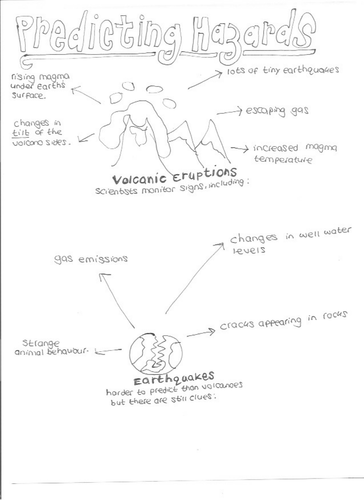 Predicting Hazards
rising magma
under earths
surface.
lots of tiny earthquakes
escaping gas
changes in
tilt of the
volcano sides.
increased magma
temperature
Volcanic Eruptions
Scientists monitor signs, including:
changes in well water
levels
gas emissions
cracks appearing in rocks
Strange
animal behaviour.
Earthquakes
harder to predict than volcanoes
but there are still clues: